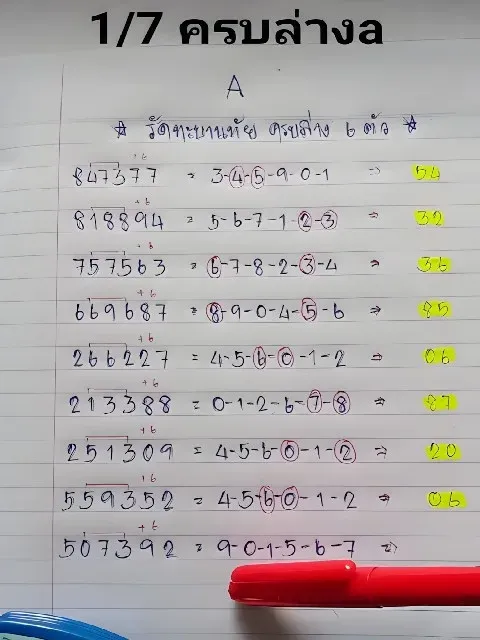 1/7 ครบล่างa
A
☆ รัฐทะบานทัย ครบล่าง 6 ตัว ☆
+6
847377 = 3-4-5-9-0-1 → 54
+6
818894 = 5-6-7-1-2-3 ⇒ 32
+6
757563 = 6-7-8-2-3-4 ⇒ 36
+6
669687 = 8-9-0-4-5-6 ⇒ 85
+6
266227 = 4-5-6-0-1-2 ⇒ 06
+6
213388 = 0-1-2-6-7-8 ⇒ 87
+6
251309 = 4-5-6-0-1-2 ⇒ 20
+6
559352 = 4-5-6-0-1-2 ⇒ 06
+6
507392 = 9-0-1-5-6-7 ⇒